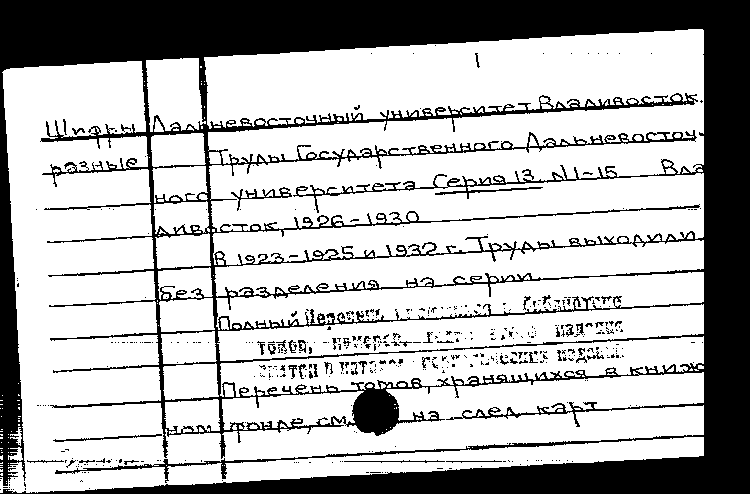 Шифры Дальневосточный университет Владивосток.
разные Труды Государственного Дальневосточ-
ного университета Серия 13. №1-15 Вла
дивосток, 1926-1930
В 1923-1925 и 1932 г. Труды выходили
без разделения на серии.
Полный Перечень имеющихся в библиотеке
томов, номеров, издания
каталоге периодических изданий
Перечень томов, хранящихся в книж
ном фонде, см. на след карт